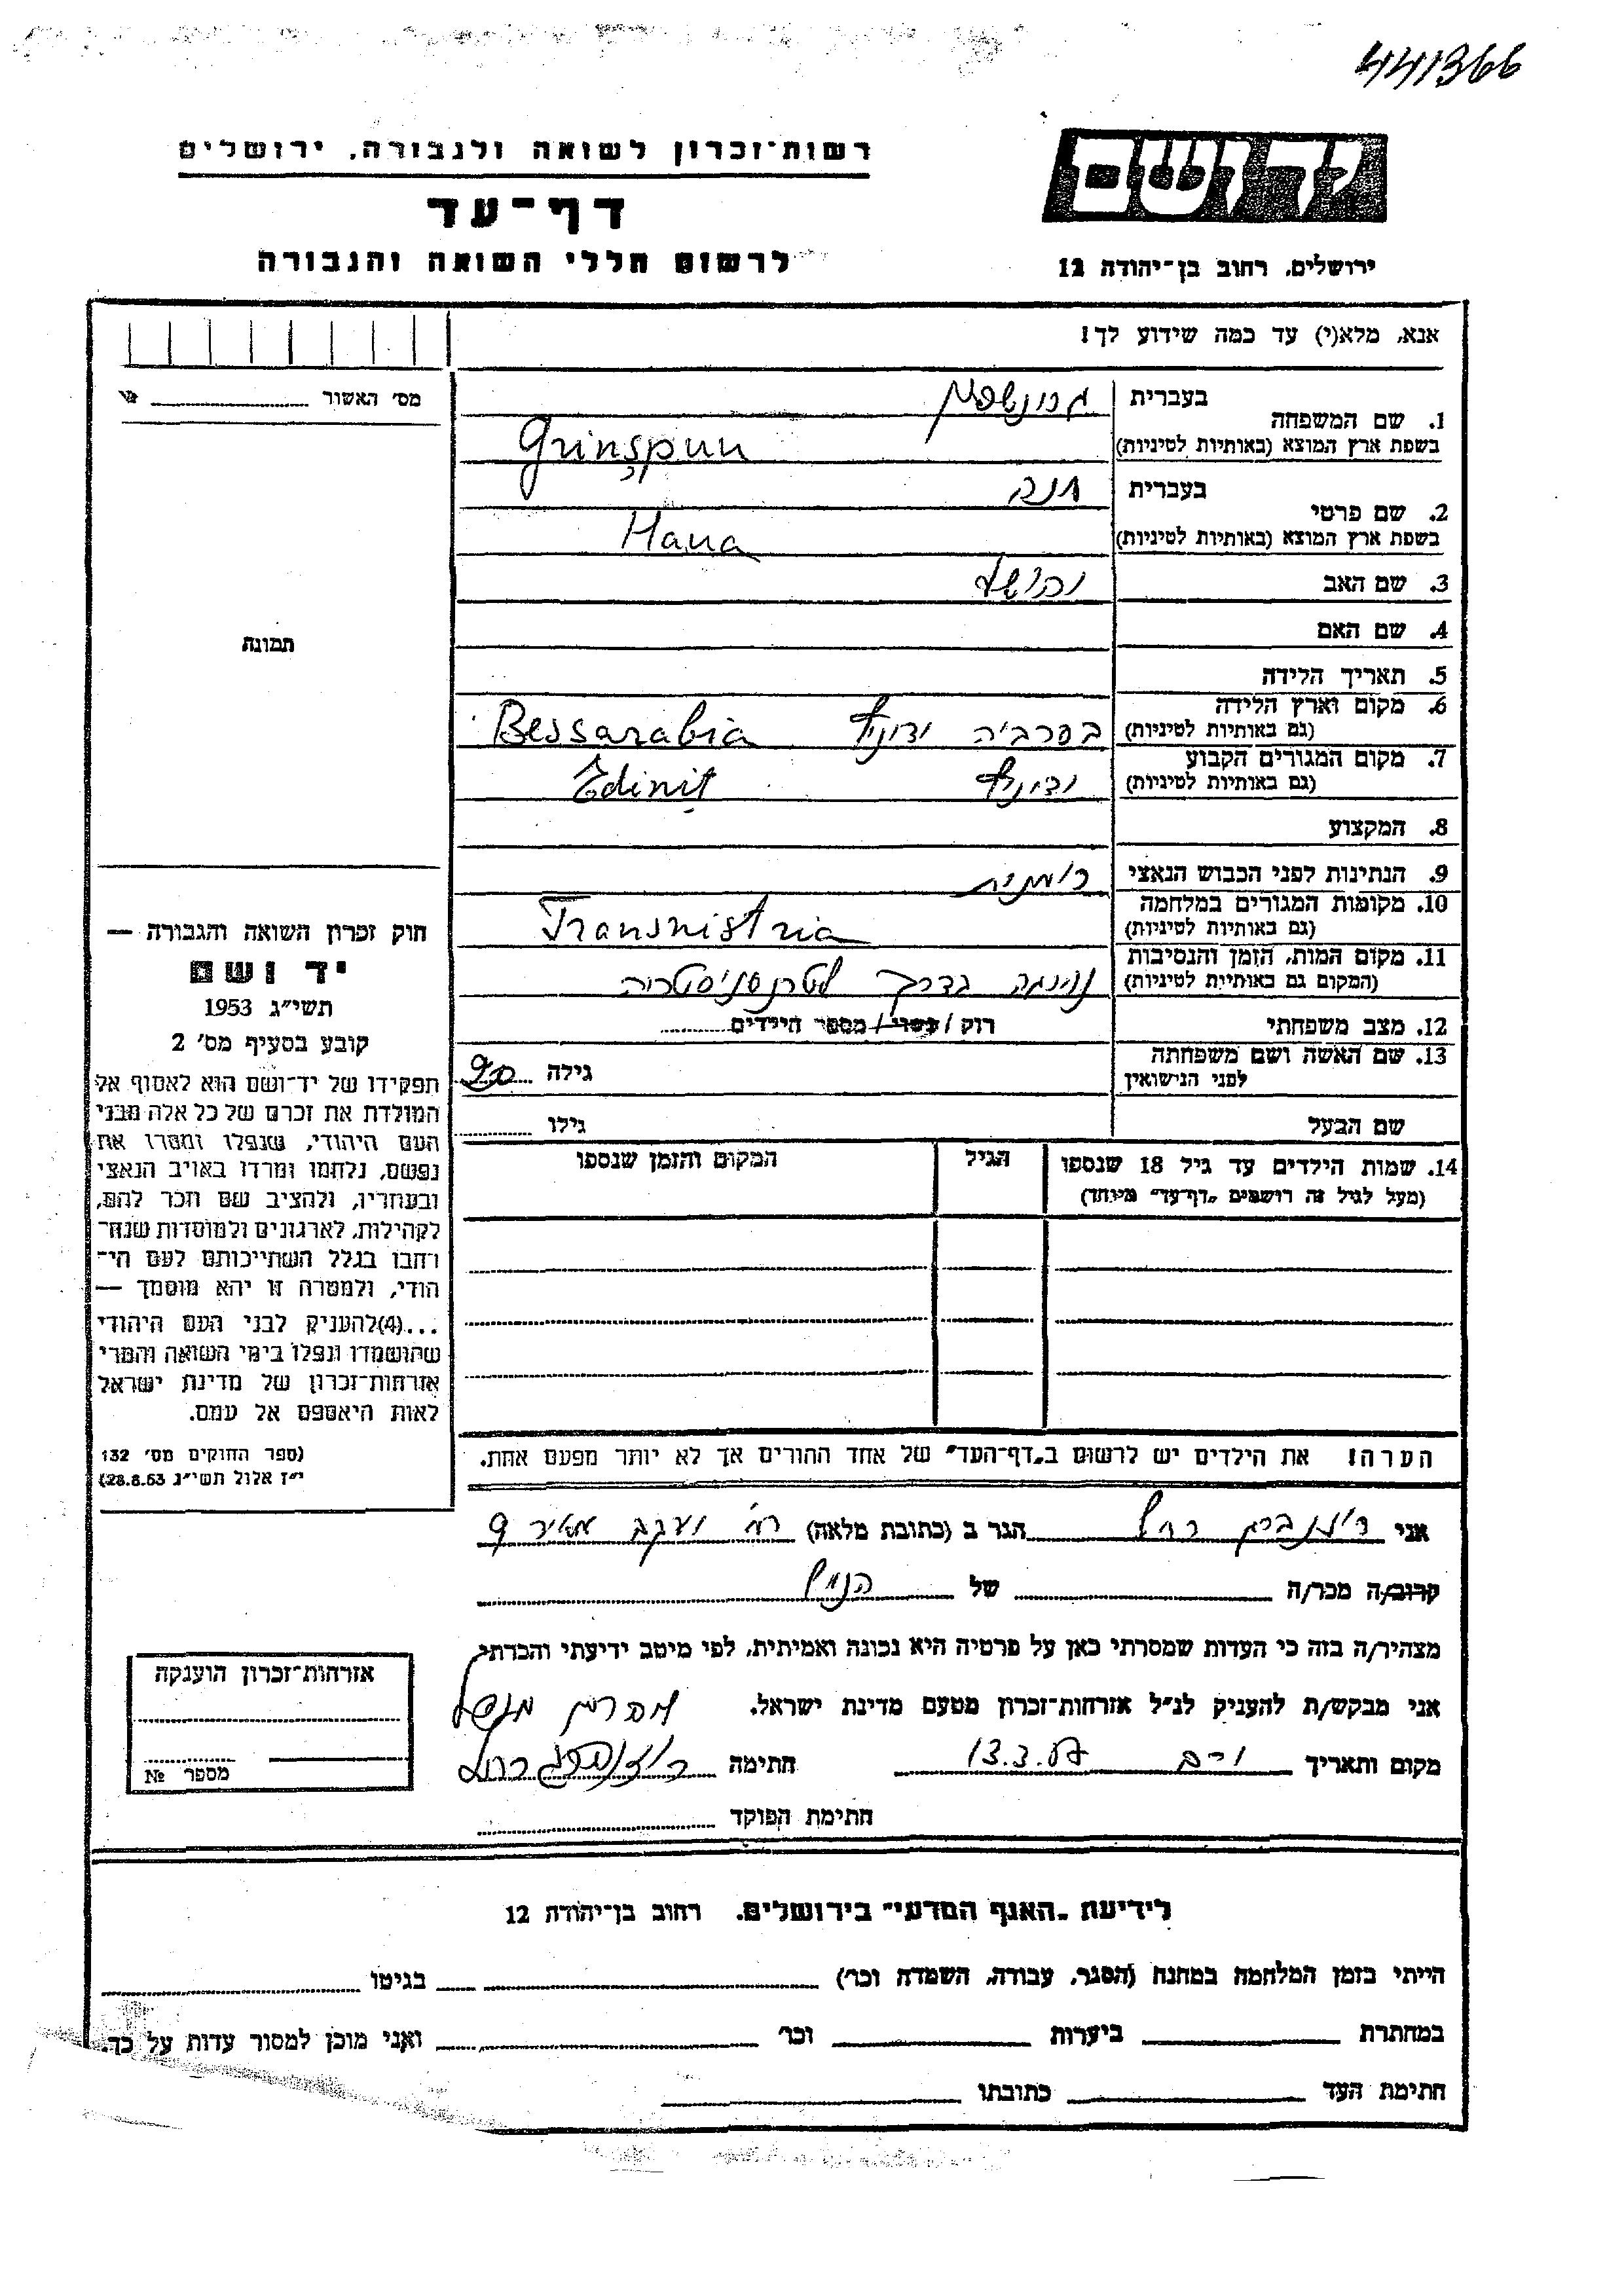 441366
יד ושם
ירושלים, רחוב בן־יהודה 12
רשות־זכרון לשואה ולגבורה, ירושלים
דף־עד
לרשום חללי השואה והגבורה
אנא, מלא(י) עד כמה שידוע לך!
מס' האשור
תמונה
בעברית
1. שם המשפחה
בשפת ארץ המוצא (באותיות לטיניות) Grinşpun
בעברית חנה
2. שם פרטי
בשפת ארץ המוצא (באותיות לטיניות) Hana
3. שם האב יהושע
4. שם האם
5. תאריך הלידה
6. מקום וארץ הלידה
(גם באותיות לטיניות) בסרביה ידיניץ Bessarabia
7. מקום המגורים הקבוע
(גם באותיות לטיניות) ידיניץ Edinit
8. המקצוע
9. הנתינות לפני הכבוש הנאצי רומנית
10. מקומות המגורים במלחמה
(גם באותיות לטיניות) Transnistria
11. מקום המות, הזמן והנסיבות
(המקום גם באותיות לטיניות) בדרך לטרנסניסטריה
12. מצב משפחתי רוק / נשוי / מספר הילדים
13. שם האשה ושם משפחתה
לפני הנישואין גילה 20
שם הבעל גילו
14. שמות הילדים עד גיל 18 שנספו הגיל המקום והזמן שנספו
(מעל לגיל זה רושמים „דף־עד" מיוחד)
הערה! את הילדים יש לרשום ב„דף־העד" של אחד ההורים אך לא יותר מפעם אחת.
חוק זכרון השואה והגבורה —
יד ושם
תשי"ג 1953
קובע בסעיף מס' 2
תפקידו של יד־ושם הוא לאסוף אל
המולדת את זכרם של כל אלה מבני
העם היהודי, שנפלו ומסרו את
נפשם, נלחמו ומרדו באויב הנאצי
ובעוזריו, ולהציב שם וזכר להם,
לקהילות, לארגונים ולמוסדות שנח־
רחבו בגלל השתייכותם לעם הי־
הודי, ולמטרה זו יהא מוסמך —
...(4) להעניק לבני העם היהודי
שהושמדו ונפלו בימי השואה והמרי
אזרחות־זכרון של מדינת ישראל
לאות היאספם אל עמם.
(ספר החוקים מס' 132
י"ז אלול תשי"ג 28.8.53)
אני רחל הגר ב (כתובת מלאה) רח' יעקב מאיר 9
קרוב/ה מכר/ה של הנ"ל
מצהיר/ה בזה כי העדות שמסרתי כאן על פרטיה היא נכונה ואמיתית, לפי מיטב ידיעתי והכרתי.
אני מבקש/ת להעניק לנ"ל אזרחות־זכרון מטעם מדינת ישראל.
מקום ותאריך 13.3.57 חתימה
חתימת הפוקד
אזרחות־זכרון הוענקה
מספר №
לידיעת „האגף המדעי" בירושלים, רחוב בן־יהודה 12
הייתי בזמן המלחמה במחנה (הסגר, עבודה, השמדה וכר') בגיטו
במחתרת ביערות וכר' ואני מוכן למסור עדות על כך.
חתימת העד כתובתו